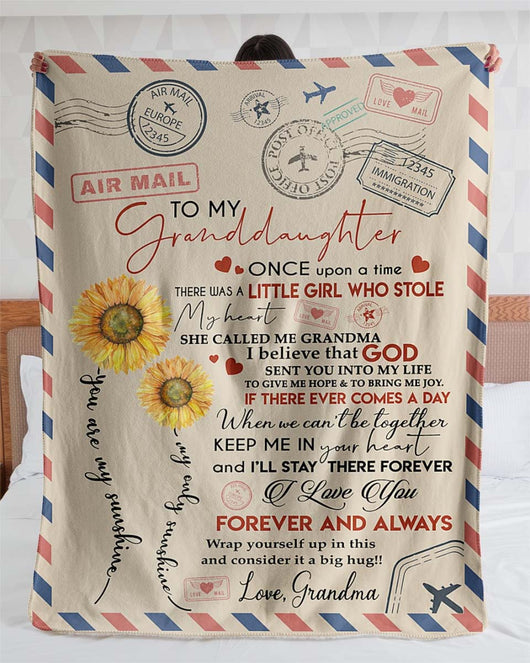 AIR MAIL
EUROPE
12345
ARRIVAL
12345
APPROVED
LOVE MAIL
POST OFFICE
POST OFFICE
12345
IMMIGRATION
AIR MAIL
TO MY
Granddaughter
ONCE upon a time
THERE WAS A LITTLE GIRL WHO STOLE
My heart
SHE CALLED ME GRANDMA
I believe that GOD
SENT YOU INTO MY LIFE
TO GIVE ME HOPE & TO BRING ME JOY.
IF THERE EVER COMES A DAY
When we can't be together
KEEP ME IN your heart
and I'LL STAY THERE FOREVER
I Love You
FOREVER AND ALWAYS
Wrap yourself up in this
and consider it a big hug!!
Love, Grandma
You are my sunshine,
my only sunshine
LOVE MAIL